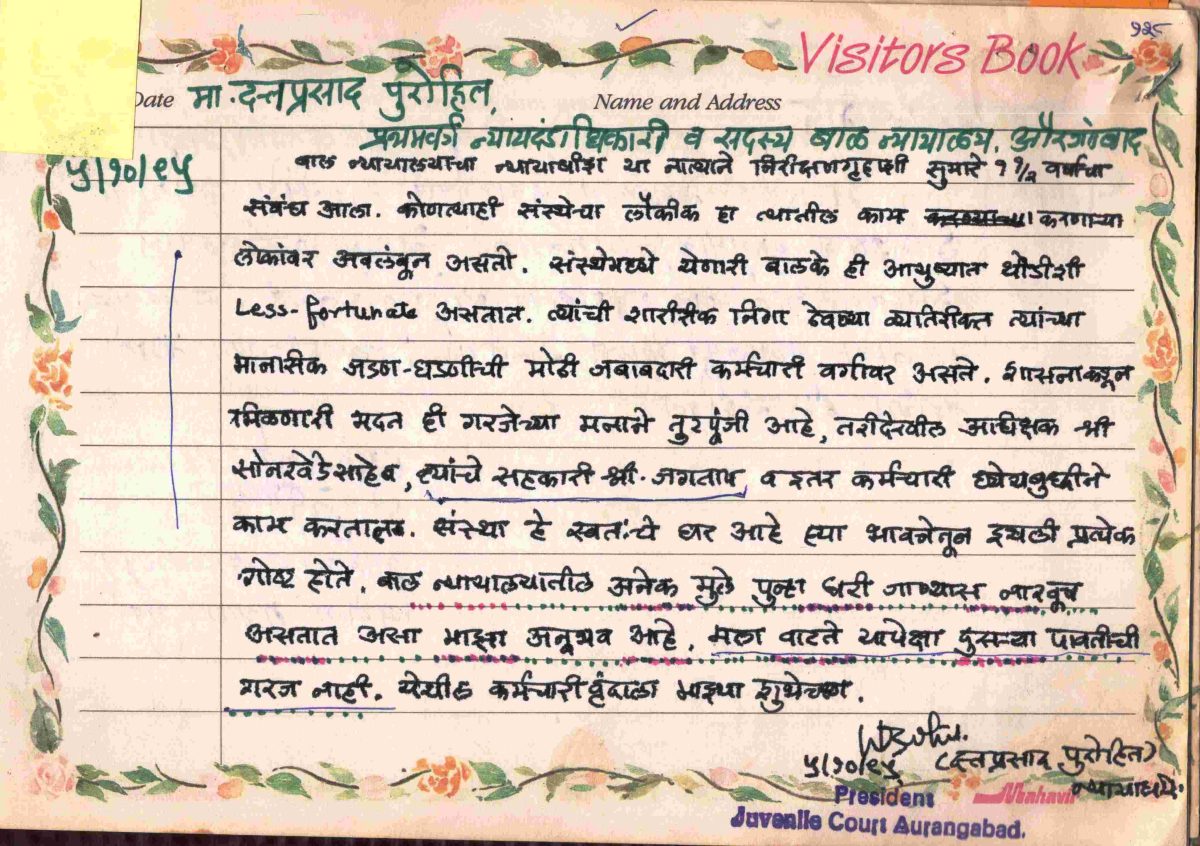 १२८
Visitors Book
Date मा. दत्तप्रसाद पुरोहित, Name and Address
प्रथमवर्ग न्यायदंडाधिकारी व सदस्य बाळ न्यायालय, औरंगाबाद
५/१०/९५ बाल न्यायालयाचा न्यायाधीश या नात्याने निरीक्षणगृहाशी सुमारे १ १/२ वर्षाचा
संबंध आला. कोणत्याही संस्थेचा लौकीक हा त्यातील काम करणाऱ्या
लोकांवर अवलंबून असतो. संस्थेमध्ये येणारी बालके ही आयुष्यात थोडीशी
Less-fortunate असतात. त्यांची शारीरीक निगा ठेवण्या व्यतिरीक्त त्यांच्या
मानसिक जडण-घडणीची मोठी जबाबदारी कर्मचारी वर्गावर असते. शासनाकडून
मिळणारी मदत ही गरजेच्या मनाने तुटपूंजी आहे, तरीदेखील अधिक्षक श्री
सोनरवेडेसाहेब, त्यांचे सहकारी श्री. जगताप व इतर कर्मचारी ध्येयबुध्दीने
काम करतात. संस्था हे स्वतःचे घर आहे ह्या भावनेतून इथली प्रत्येक
गोष्ट होते. बाल न्यायालयातील अनेक मुले पुन्हा घरी जाण्यास नाखूष
असतात असा माझा अनुभव आहे. मला वाटते यापेक्षा दुसऱ्या पावतीची
गरज नाही. येथील कर्मचारीवृंदाला माझ्या शुभेच्छा.
५/१०/९५ (दत्तप्रसाद पुरोहित)
न्यायाधीश.
President
Juvenile Court Aurangabad.
Mahavir